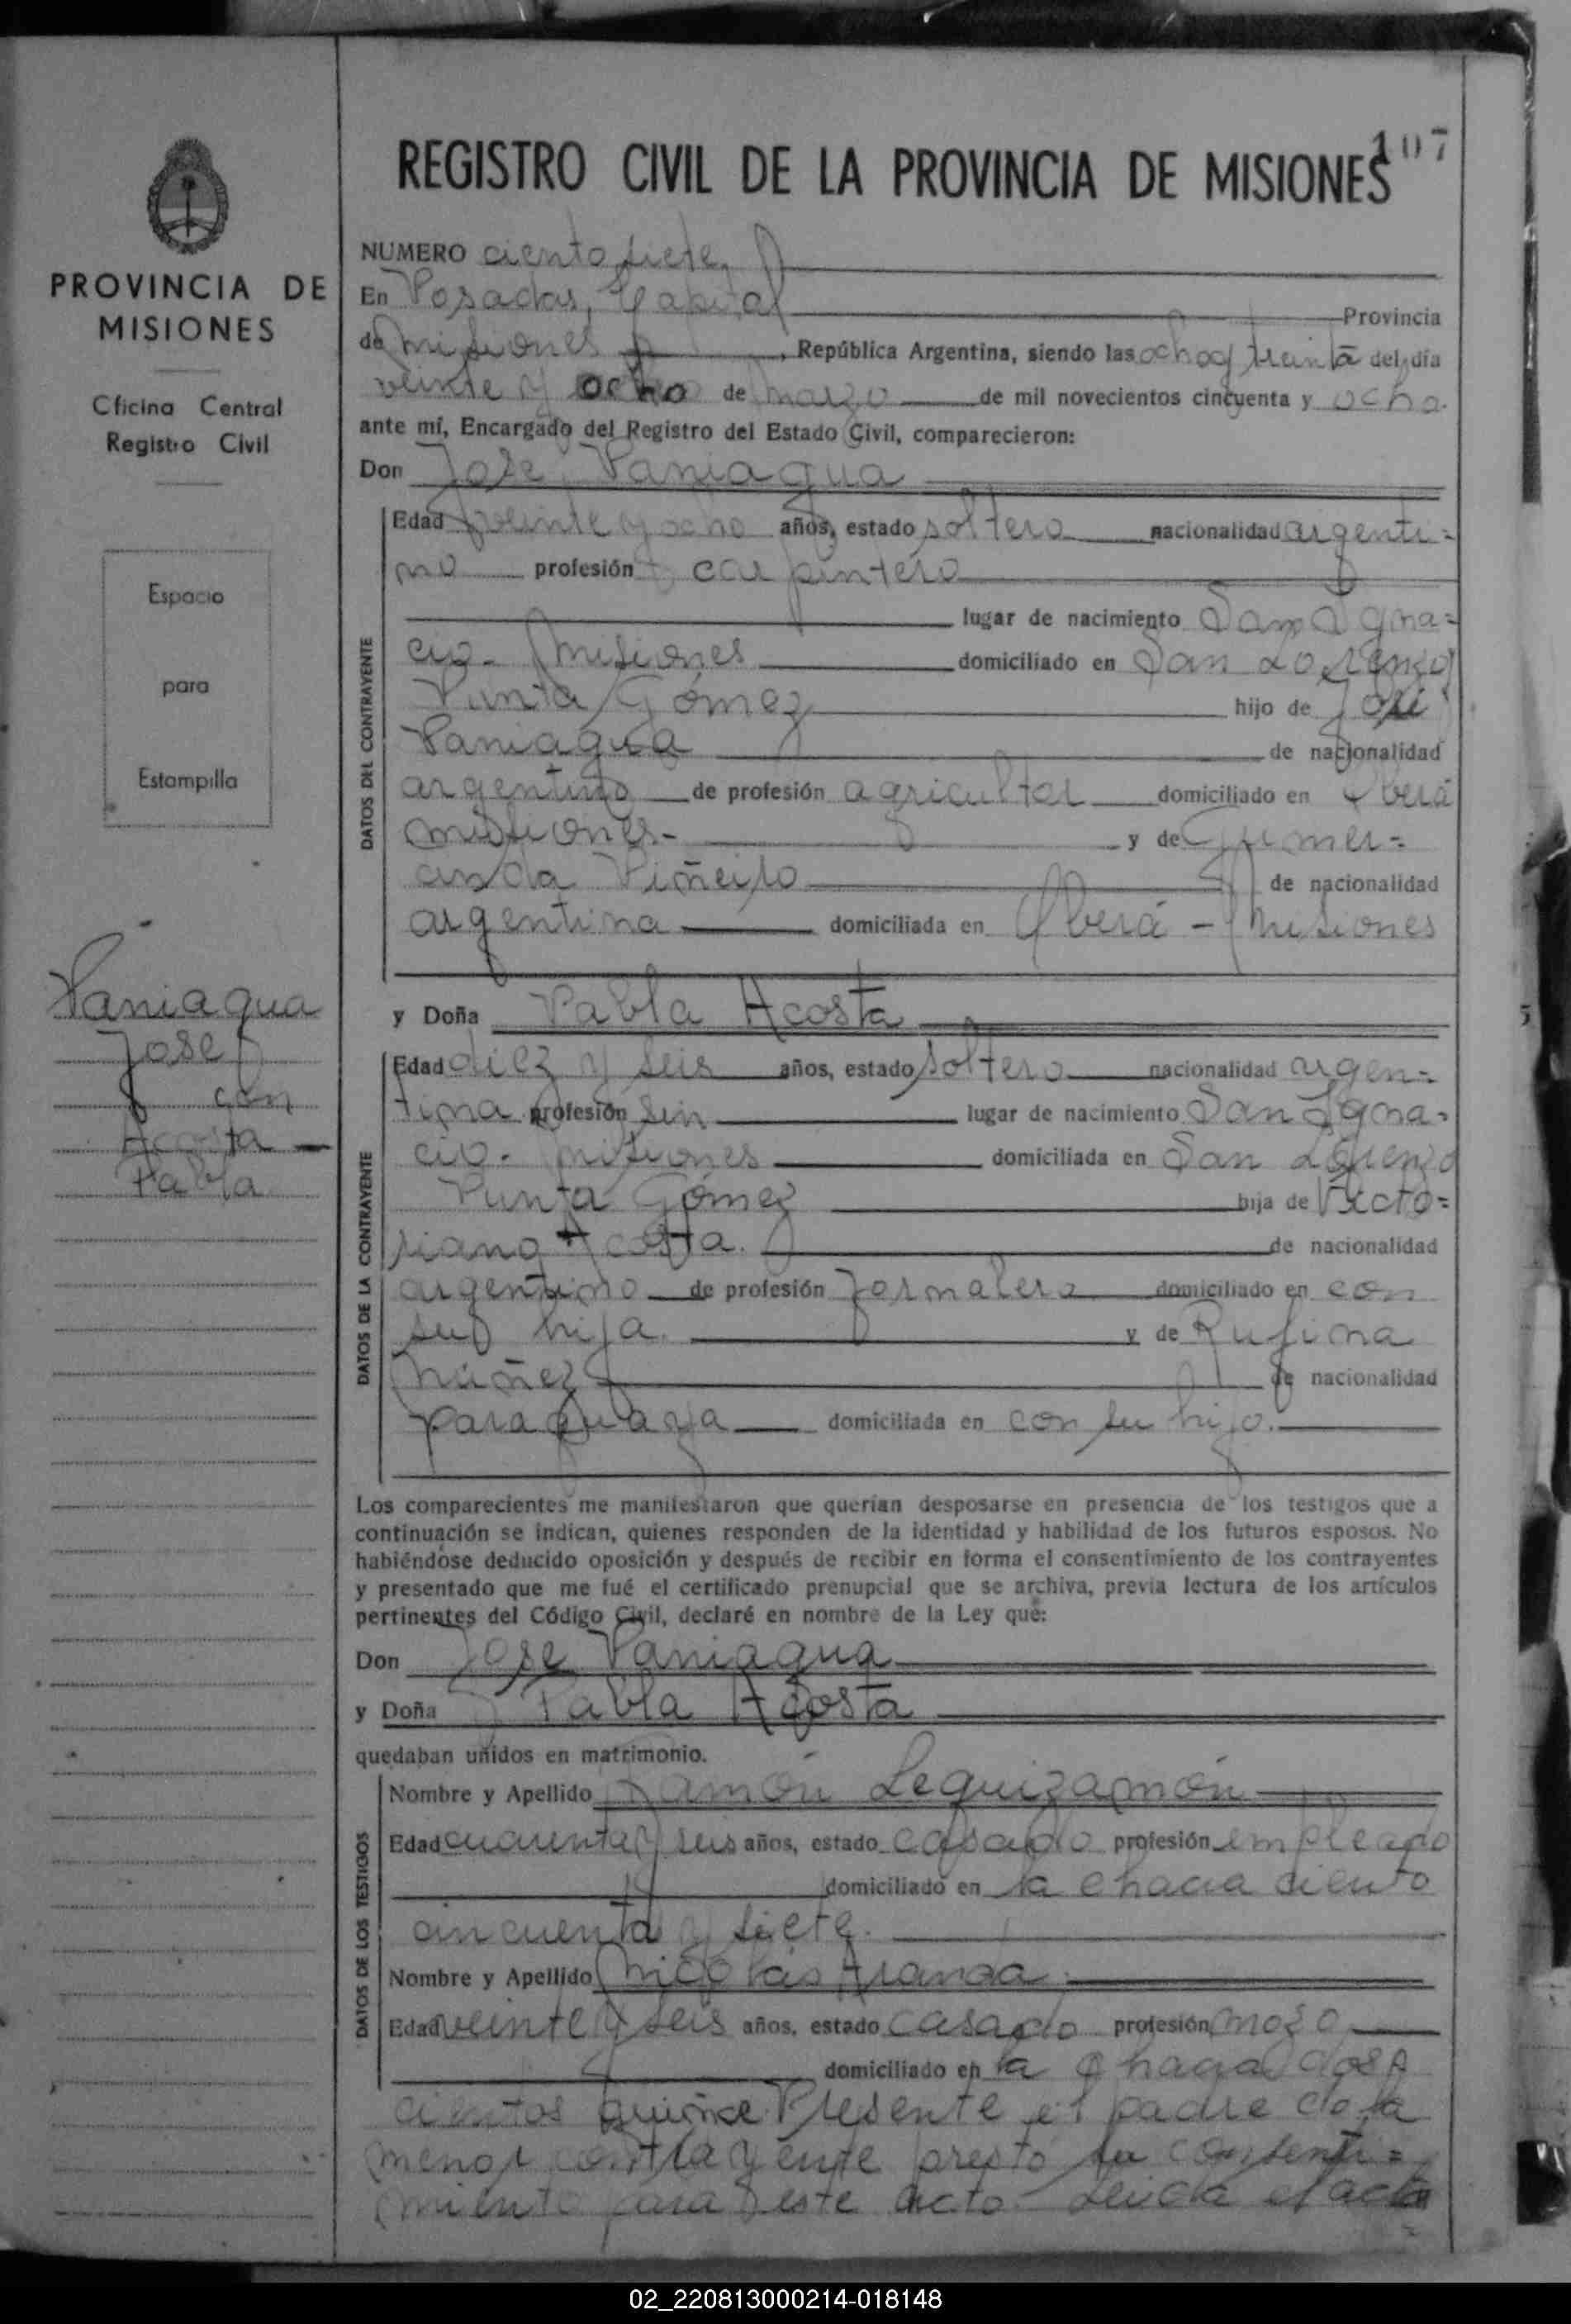 107
REGISTRO CIVIL DE LA PROVINCIA DE MISIONES
PROVINCIA DE
MISIONES
Oficina Central
Registro Civil
Espacio
para
Estampilla
Paniagua
Jose
con
Acosta
Pabla
NUMERO ciento siete
En Posadas, Capital Provincia
de Misiones, República Argentina, siendo las ocho y treinta del día
veinte y ocho de marzo de mil novecientos cincuenta y ocho.
ante mí, Encargado del Registro del Estado Civil, comparecieron:
Don Jose Paniagua
DATOS DEL CONTRAYENTE
Edad veinte y ocho años, estado soltero nacionalidad argenti=
no profesión carpintero
lugar de nacimiento San Igna=
cio- Misiones domiciliado en San Lorenzo
Punta Gómez hijo de José
Paniagua de nacionalidad
argentino de profesión agricultor domiciliado en Oberá
Misiones.- y de Gumer=
cinda Piñeiro de nacionalidad
argentina domiciliada en Oberá - Misiones
y Doña Pabla Acosta
DATOS DE LA CONTRAYENTE
Edad diez y seis años, estado soltero nacionalidad argen=
tina profesión sin lugar de nacimiento San Igna=
cio. Misiones domiciliada en San Lorenzo
Punta Gómez hija de Victo=
riano Acosta. de nacionalidad
argentino de profesión Jornalero domiciliado en con
su hija. y de Rufina
Núñez de nacionalidad
paraguaya domiciliada en con su hijo.
Los comparecientes me manifestaron que querían desposarse en presencia de los testigos que a
continuación se indican, quienes responden de la identidad y habilidad de los futuros esposos. No
habiéndose deducido oposición y después de recibir en forma el consentimiento de los contrayentes
y presentado que me fué el certificado prenupcial que se archiva, previa lectura de los artículos
pertinentes del Código Civil, declaré en nombre de la Ley que:
Don Jose Paniagua
y Doña Pabla Acosta
quedaban unidos en matrimonio.
DATOS DE LOS TESTIGOS
Nombre y Apellido Ramón Leguizamón
Edad cuarenta y seis años, estado casado profesión empleado
domiciliado en la chacra ciento
cincuenta y siete.
Nombre y Apellido Nicolás Aranda
Edad veinte y seis años, estado casado profesión mozo
domiciliado en la chacra dos
cientos quince. Presente el padre de la
menor contrayente presto su consenti=
miento para este acto. Leida el acta
02_220813000214-018148